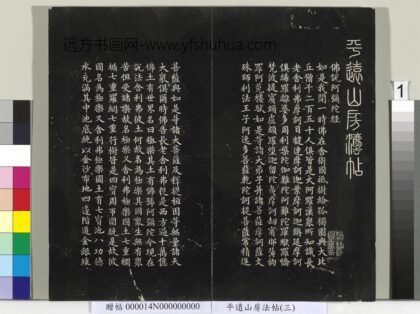 远方书画网-www.yfshuhua.com
平遠山房法帖
佛說阿彌陀經
如是我聞一時佛在舍衛國祇樹給孤獨園與大比
丘僧千二百五十人俱皆是大阿羅漢衆所知識長
老舍利弗摩訶目犍連摩訶迦葉摩訶迦旃延摩訶
俱絺羅離婆多周利槃陀伽難陀阿難陀羅睺羅憍
梵波提賓頭盧頗羅墮迦留陀夷摩訶劫賓那薄拘
羅阿㝹樓馱如是等諸大弟子并諸菩薩摩訶薩文
殊師利法王子阿逸多菩薩乾陀訶提菩薩常精進
菩薩與如是等諸大菩薩及釋提桓因等無量諸天
大衆俱爾時佛告長老舍利弗從是西方過十萬億
佛土有世界名曰極樂其土有佛號阿彌陀今現在
說法舍利弗彼土何故名爲極樂其國衆生無有衆
苦但受諸樂故名極樂又舍利弗極樂國土七重欄
楯七重羅網七重行樹皆是四寶周帀圍繞是故彼
國名爲極樂又舍利弗極樂國土有七寶池八功德
水充滿其中池底純以金沙布地四邊階道金銀琉
1
贈帖 000014N000000000
平遠山房法帖(三)